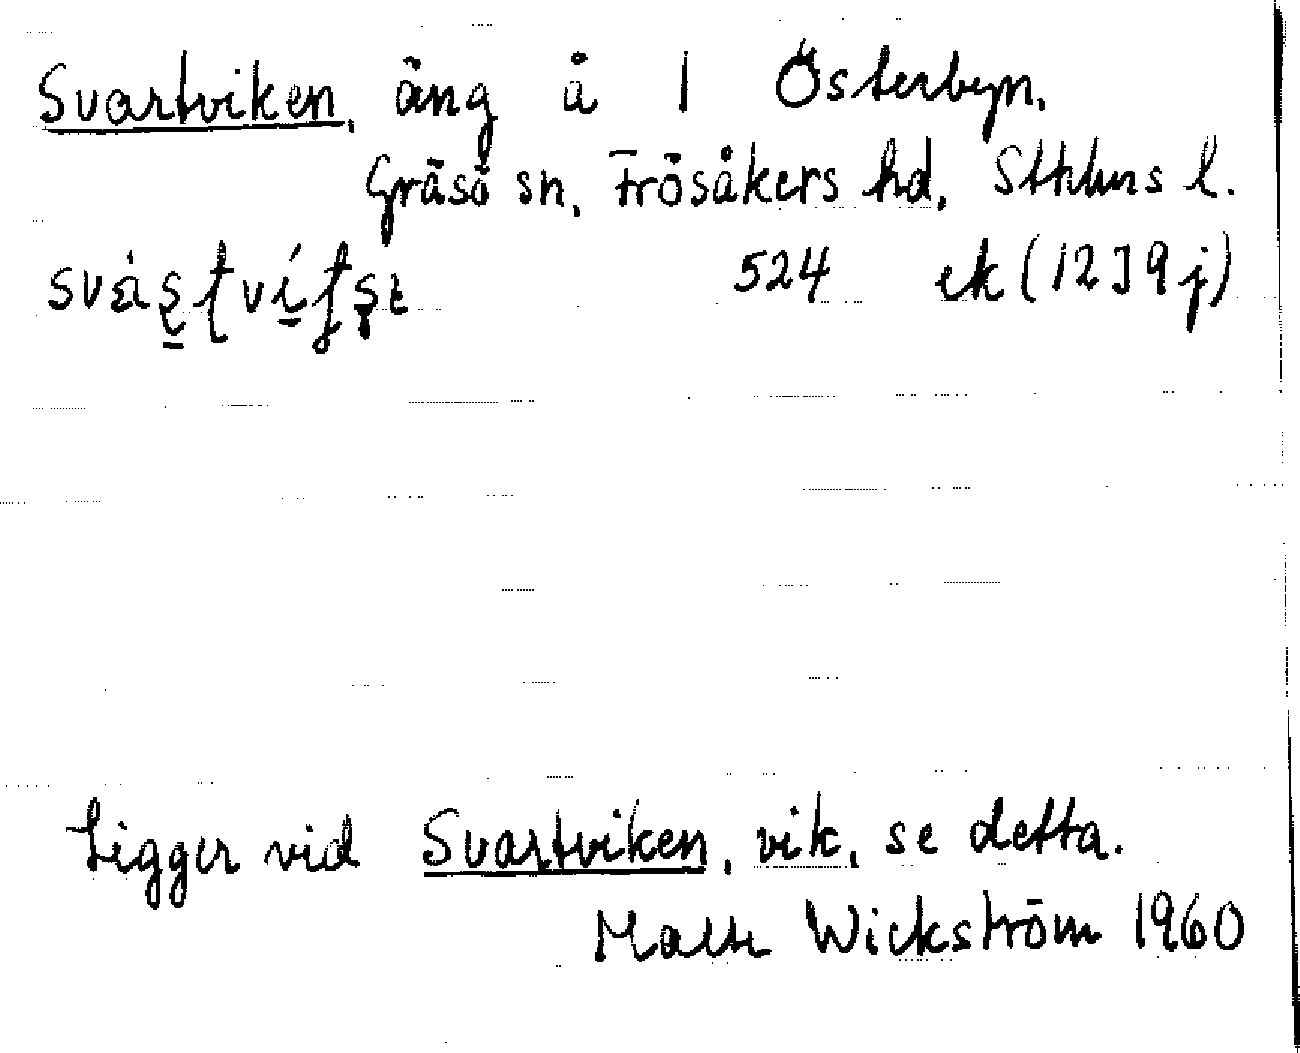 Svartviken, äng å 1 Österbyn.
Gräsö sn, Frösåkers hd, Sthlms l.
524 ek (12I9j)
Ligger vid Svartviken, vik, se detta.
Malte Wickström 1960